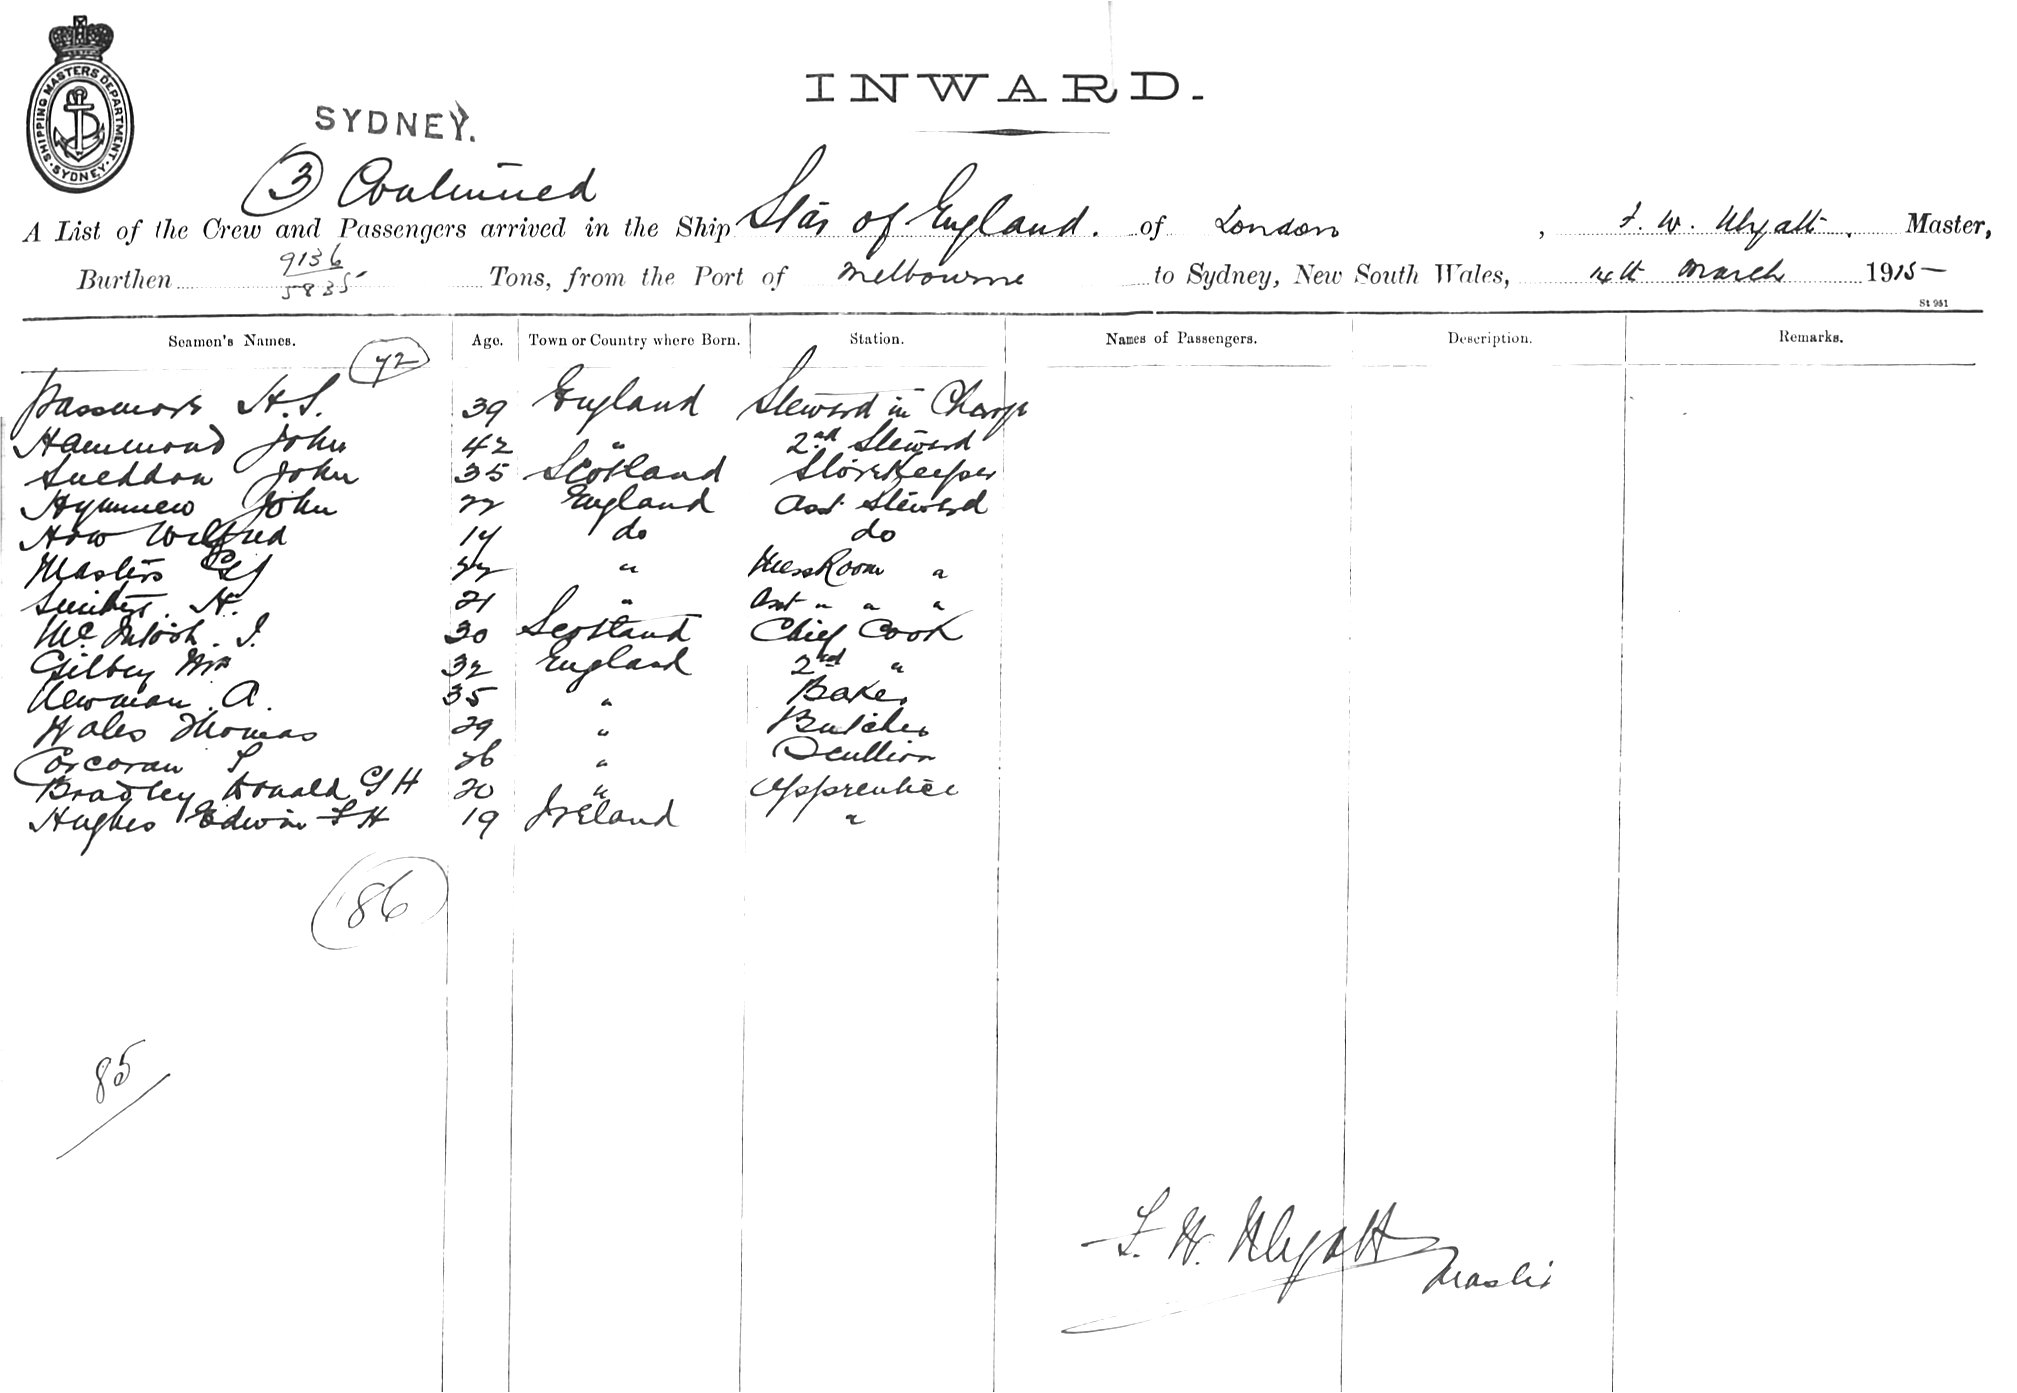 SHIPPING MASTERS DEPARTMENT. SYDNEY.
INWARD.
SYDNEY.
3 Continued
A List of the Crew and Passengers arrived in the Ship Star of England. of London , F. W. Wyatt. Master,
Burthen 9136 / 5835 Tons, from the Port of Melbourne to Sydney, New South Wales, 14th March 1915
St 951
Seamen's Names. Age. Town or Country where Born. Station. Names of Passengers. Description. Remarks.
72
Passmore H.S. 39 England Steward in Charge
Hammond John 42 " 2nd Steward
Sneddon John 35 Scotland StoreKeeper
John 22 England Asst Steward
How Wilfred 14 do do
Masters " MessRoom "
H. 21 " Asst " " "
McIntosh. J. 30 Scotland Chief Cook
Gilbey Wm 32 England 2nd "
Newman. A. 35 " Baker
Wales Thomas 29 " Butcher
Corcoran 26 " Scullion
Bradley Donald G H 20 " Apprentice
Hughes Edwin F H 19 Ireland "
86
85
F. W. Wyatt
Master